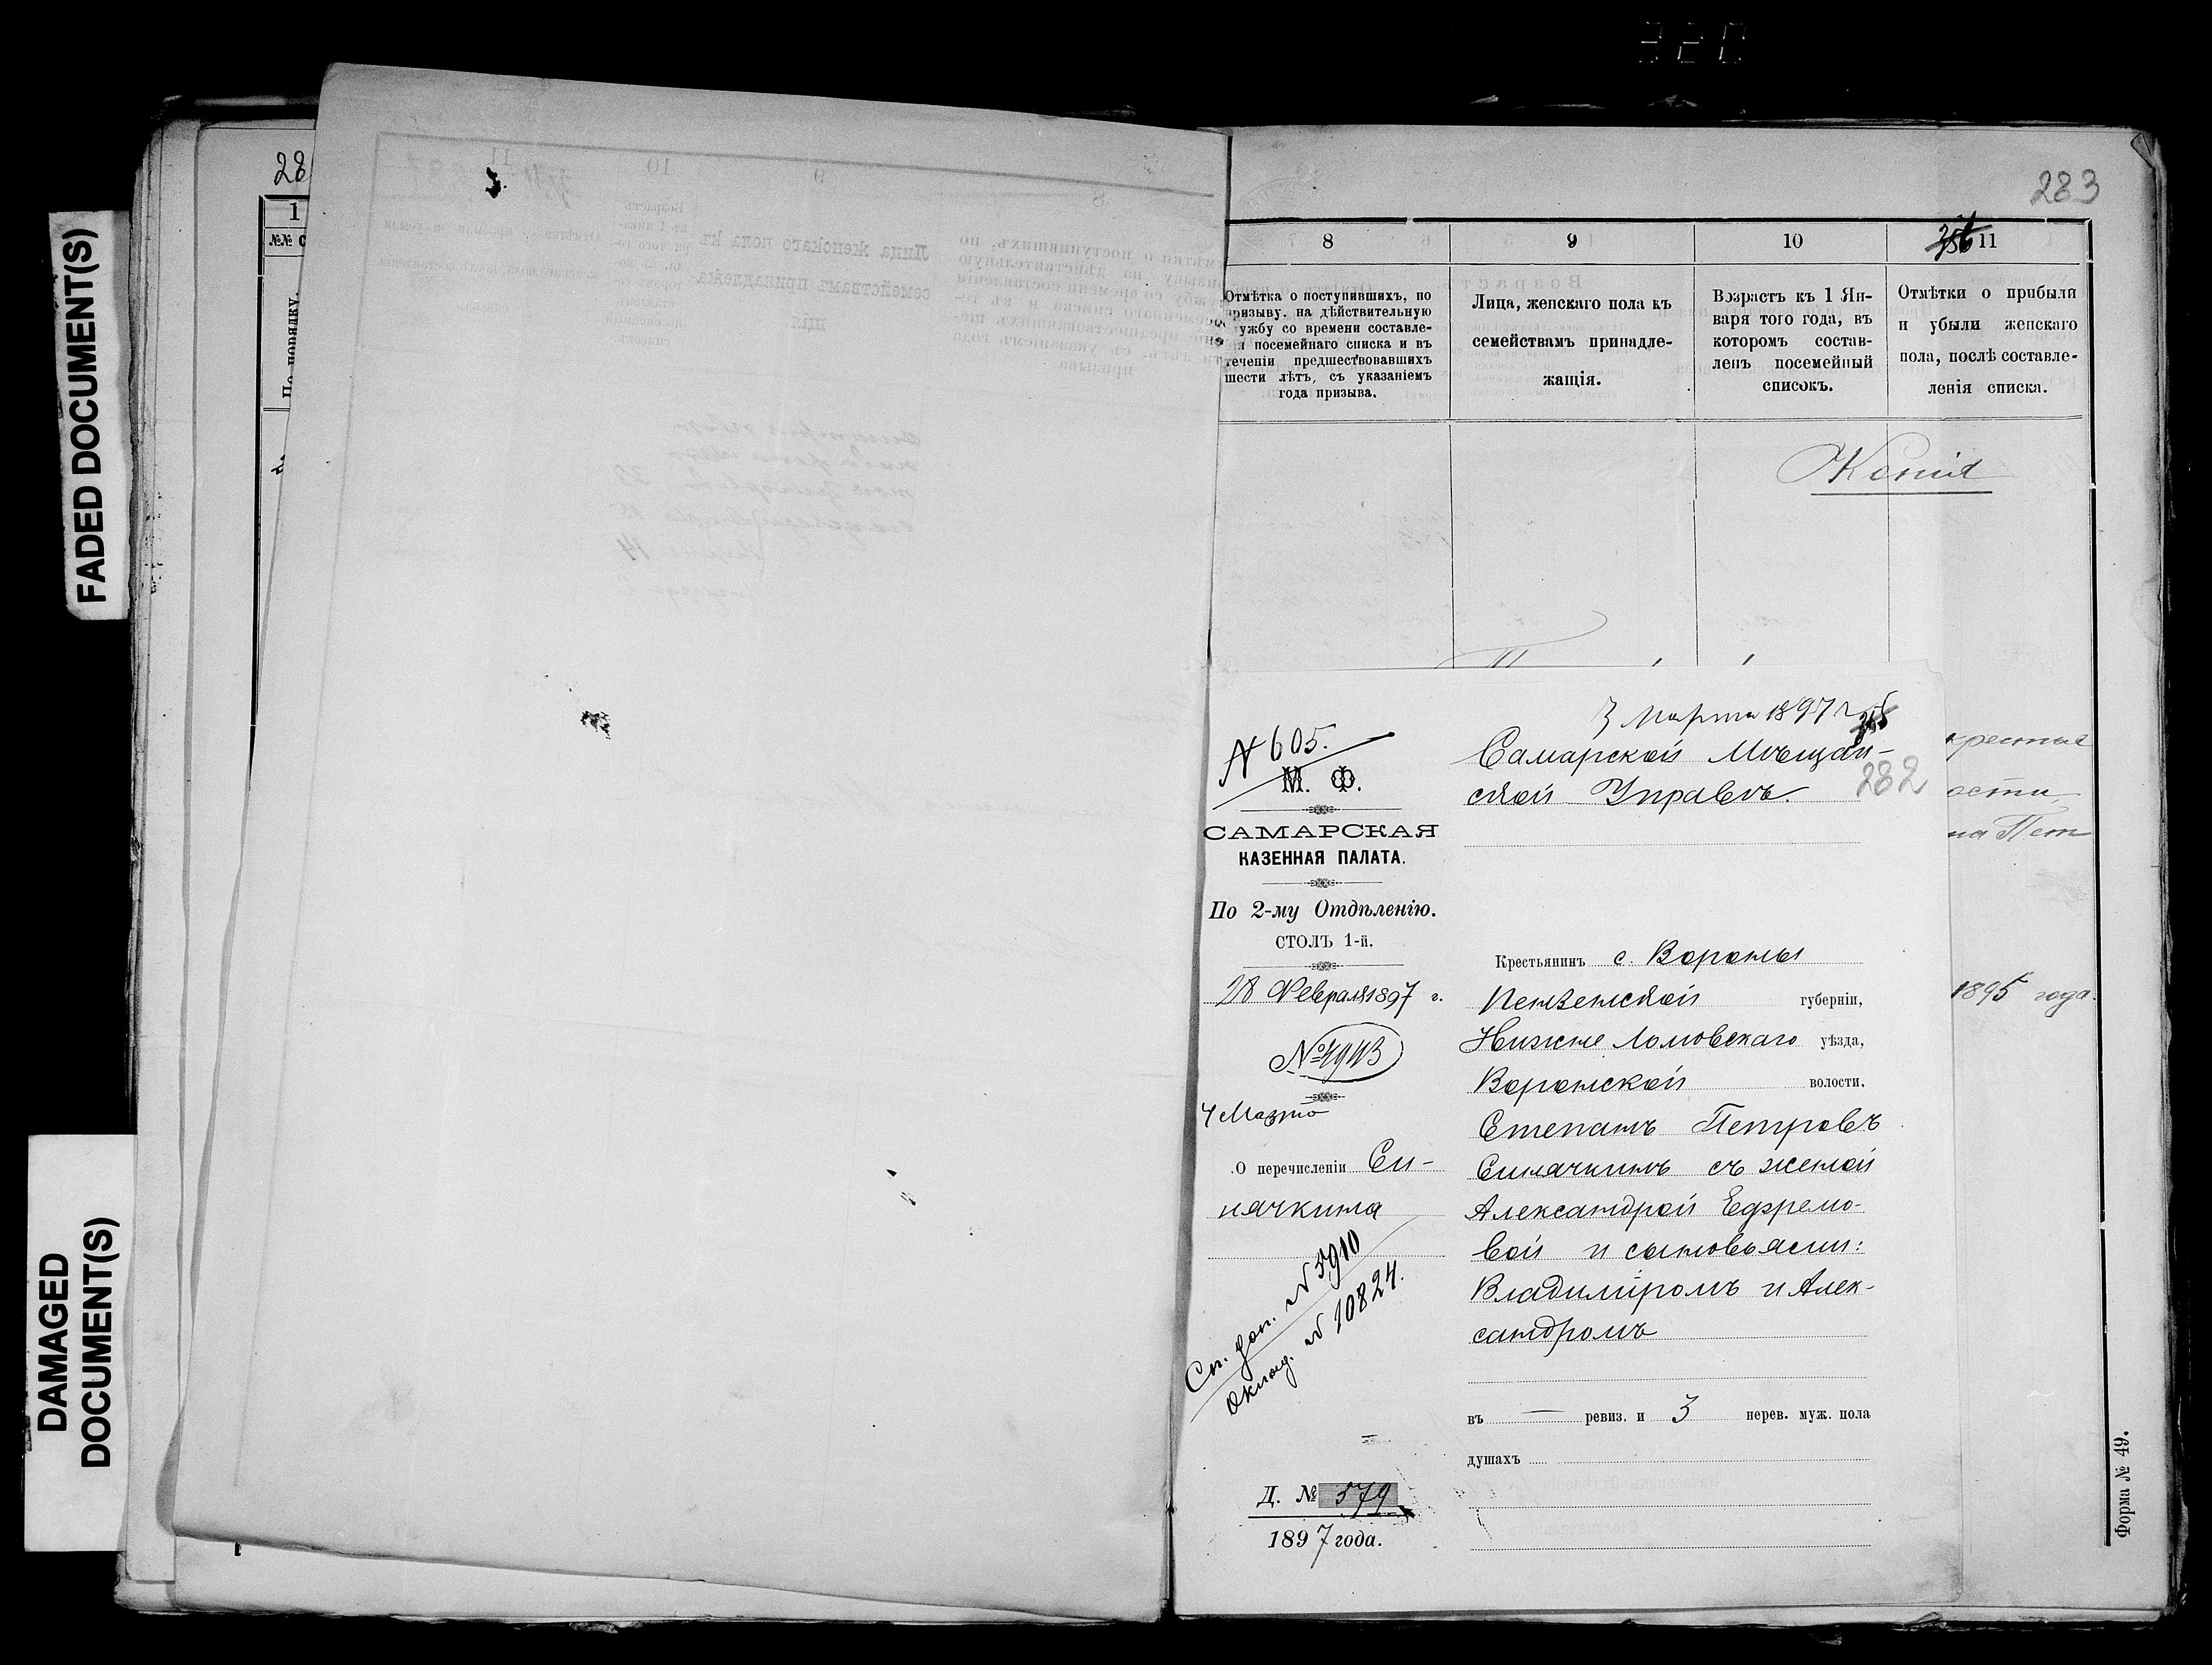 320
FADED DOCUMENT(S)
DAMAGED
DOCUMENT(S)
28
1
№№ С
По порядку.
283
8
9
10
11
Отмѣтка о поступившихъ, по
призыву, на дѣйствительную
службу со времени составле-
нія посемейнаго списка и въ
теченіи предшествовавшихъ
шести лѣтъ, съ указаніемъ
года призыва.
Лица, женскаго пола къ
семействамъ принадле-
жащія.
Возрастъ къ 1 Ян-
варя того года, въ
которомъ состав-
ленъ посемейный
списокъ.
Отмѣтки о прибыли
и убыли женскаго
пола, послѣ составле-
ленія списка.
Копія
крестья
ости
на Пет
1895 года.
Форма № 49.
3 Марта 1897 г
N 605.
М. Ф.
САМАРСКАЯ
КАЗЕННАЯ ПАЛАТА.
По 2-му Отдѣленію.
СТОЛЪ 1-й.
28 Февраля 1897 г.
4 Марта
О перечисленіи Си-
нячкина
Сп. доп. N 5910
Оклад. N 10824.
Д. № 579
1897 года.
Самарской Мѣщан-
ской Управѣ.
282
Крестьянинъ с. Вороны
Пензенской губерніи,
Нижне Ломовскаго уѣзда,
Воронской волости.
Степанъ Петровъ
Синячкинъ съ женой
Александрой Ефремо-
вой и сыновьями:
Владиміромъ и Алек-
сандромъ
въ — ревиз. и 3 перев. муж. пола
душахъ